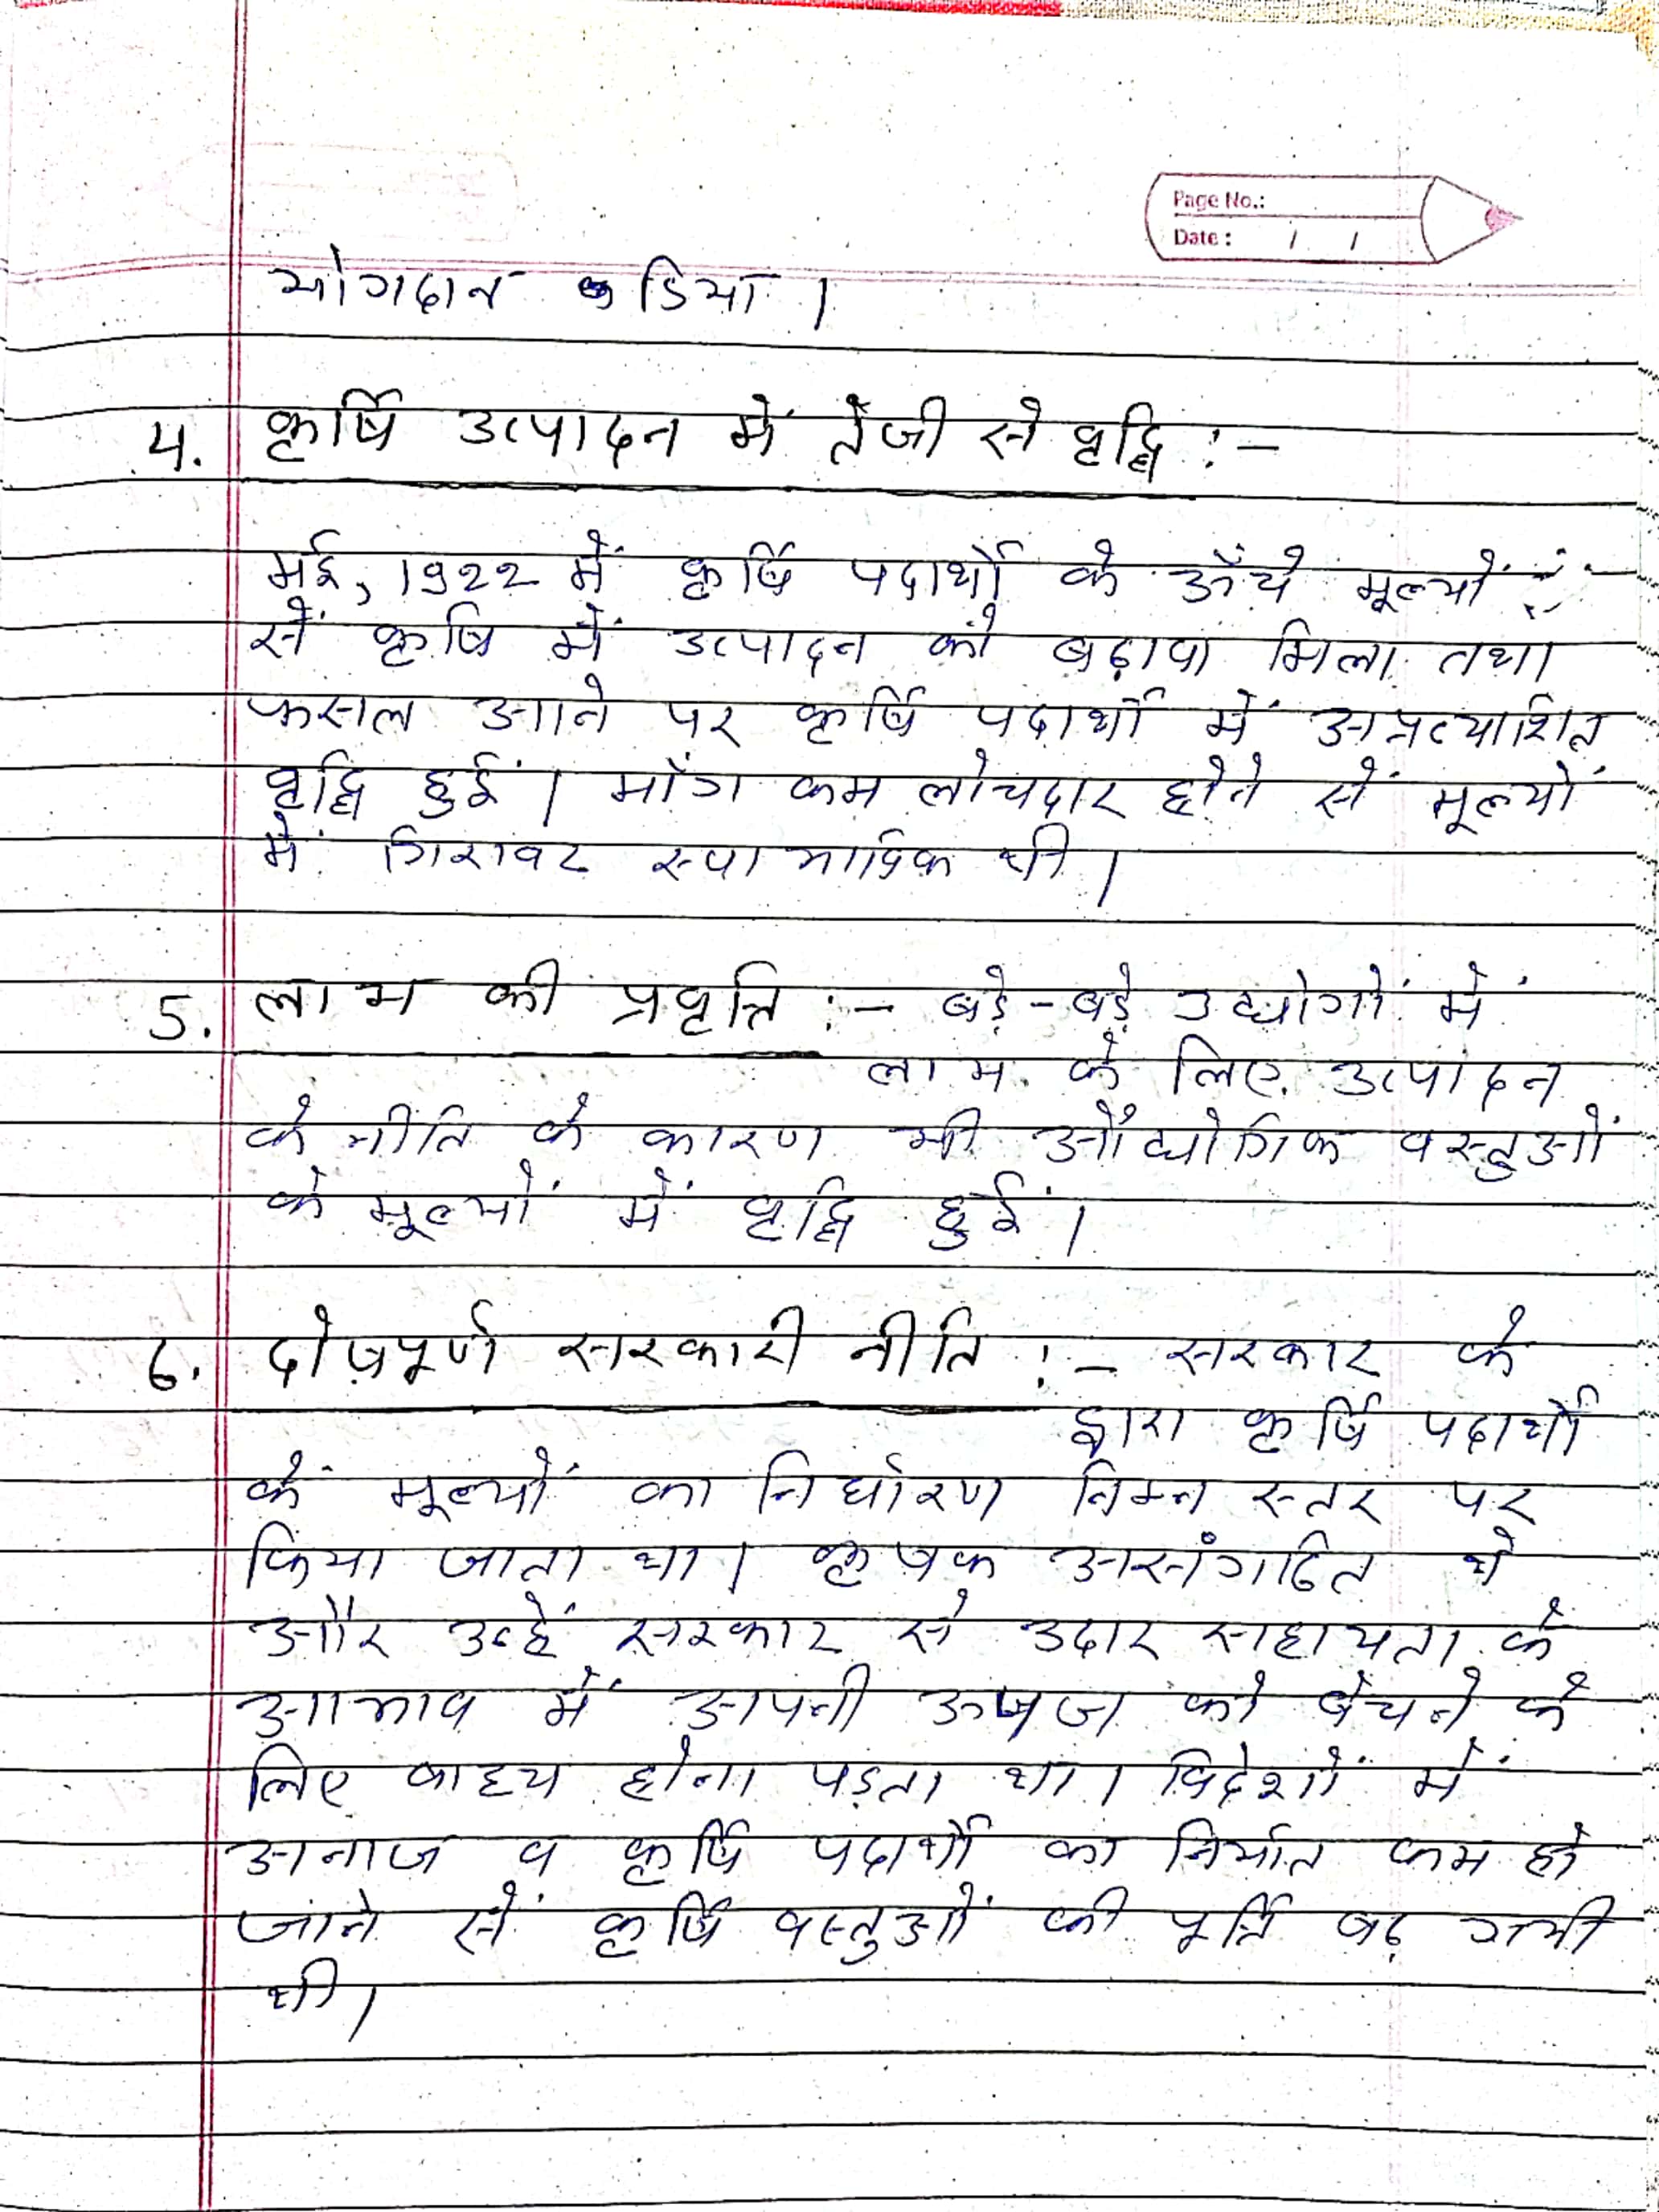 Page No.:
Date : / /
योगदान दिया ।
4. कृर्षि उत्पादन में तेजी से वृद्धि :-
मई, 1922 में कृर्षि पदार्थो के ऊँचे मूल्यों
सें कृषि में उत्पादन को बढ़ावा मिला तथा
फसल आने पर कृर्षि पदार्थो में अप्रत्याशित
वृद्धि हुई । माँग कम लोचदार होने सें मूल्यों
में गिरावट स्वाभाविक थी ।
5. लाभ की प्रवृत्ति :- बड़े-बड़े उद्योगों में
लाभ के लिए उत्पादन
के नीति के कारण भी औद्योगिक वस्तुओं
के मूल्यों में वृद्धि हुई ।
6. दोषपूर्ण सरकारी नीति :- सरकार के
द्वारा कृर्षि पदार्थो
के मूल्यों का निर्धारण निम्न स्तर पर
किया जाता था । कृषक असंगठित थे
और उन्हें सरकार से उदार सहायता के
आभाव में अपनी ऊपज को बेचने के
लिए बाध्य होना पड़ता था । विदेशों में
अनाज व कृर्षि पदार्थो का निर्यात कम हो
जाने सें कृर्षि वस्तुओं की पूर्ति बढ़ गयी
थी ।